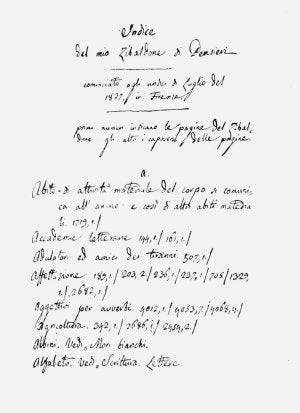 Indice
del mio Zibaldone di Pensieri
cominciato agli undici di Luglio del
1827, in Firenze.
primi numeri indicano le pagine del Zibal-
done gli altri i capoversi delle pagine
a.
Abito di attività materiale del corpo si comuni-
ca all'animo e così di altri abiti materia-
li. 1719,1/
Accademie letterarie 144,1/161,1/
Adulatori ed amici dei tiranni. 507,1/
Affettazione 189,1/203,2/236,1/237,1/705/1329,
1/2682,1/
Aggettivi per avverbi. 4012,1/4053,7/4068,4/
Agricoltura. 342,1/2686,1/2454,2/
Albini. Vedi Mori bianchi.
Alfabeto. Vedi Scrittura. Lettere